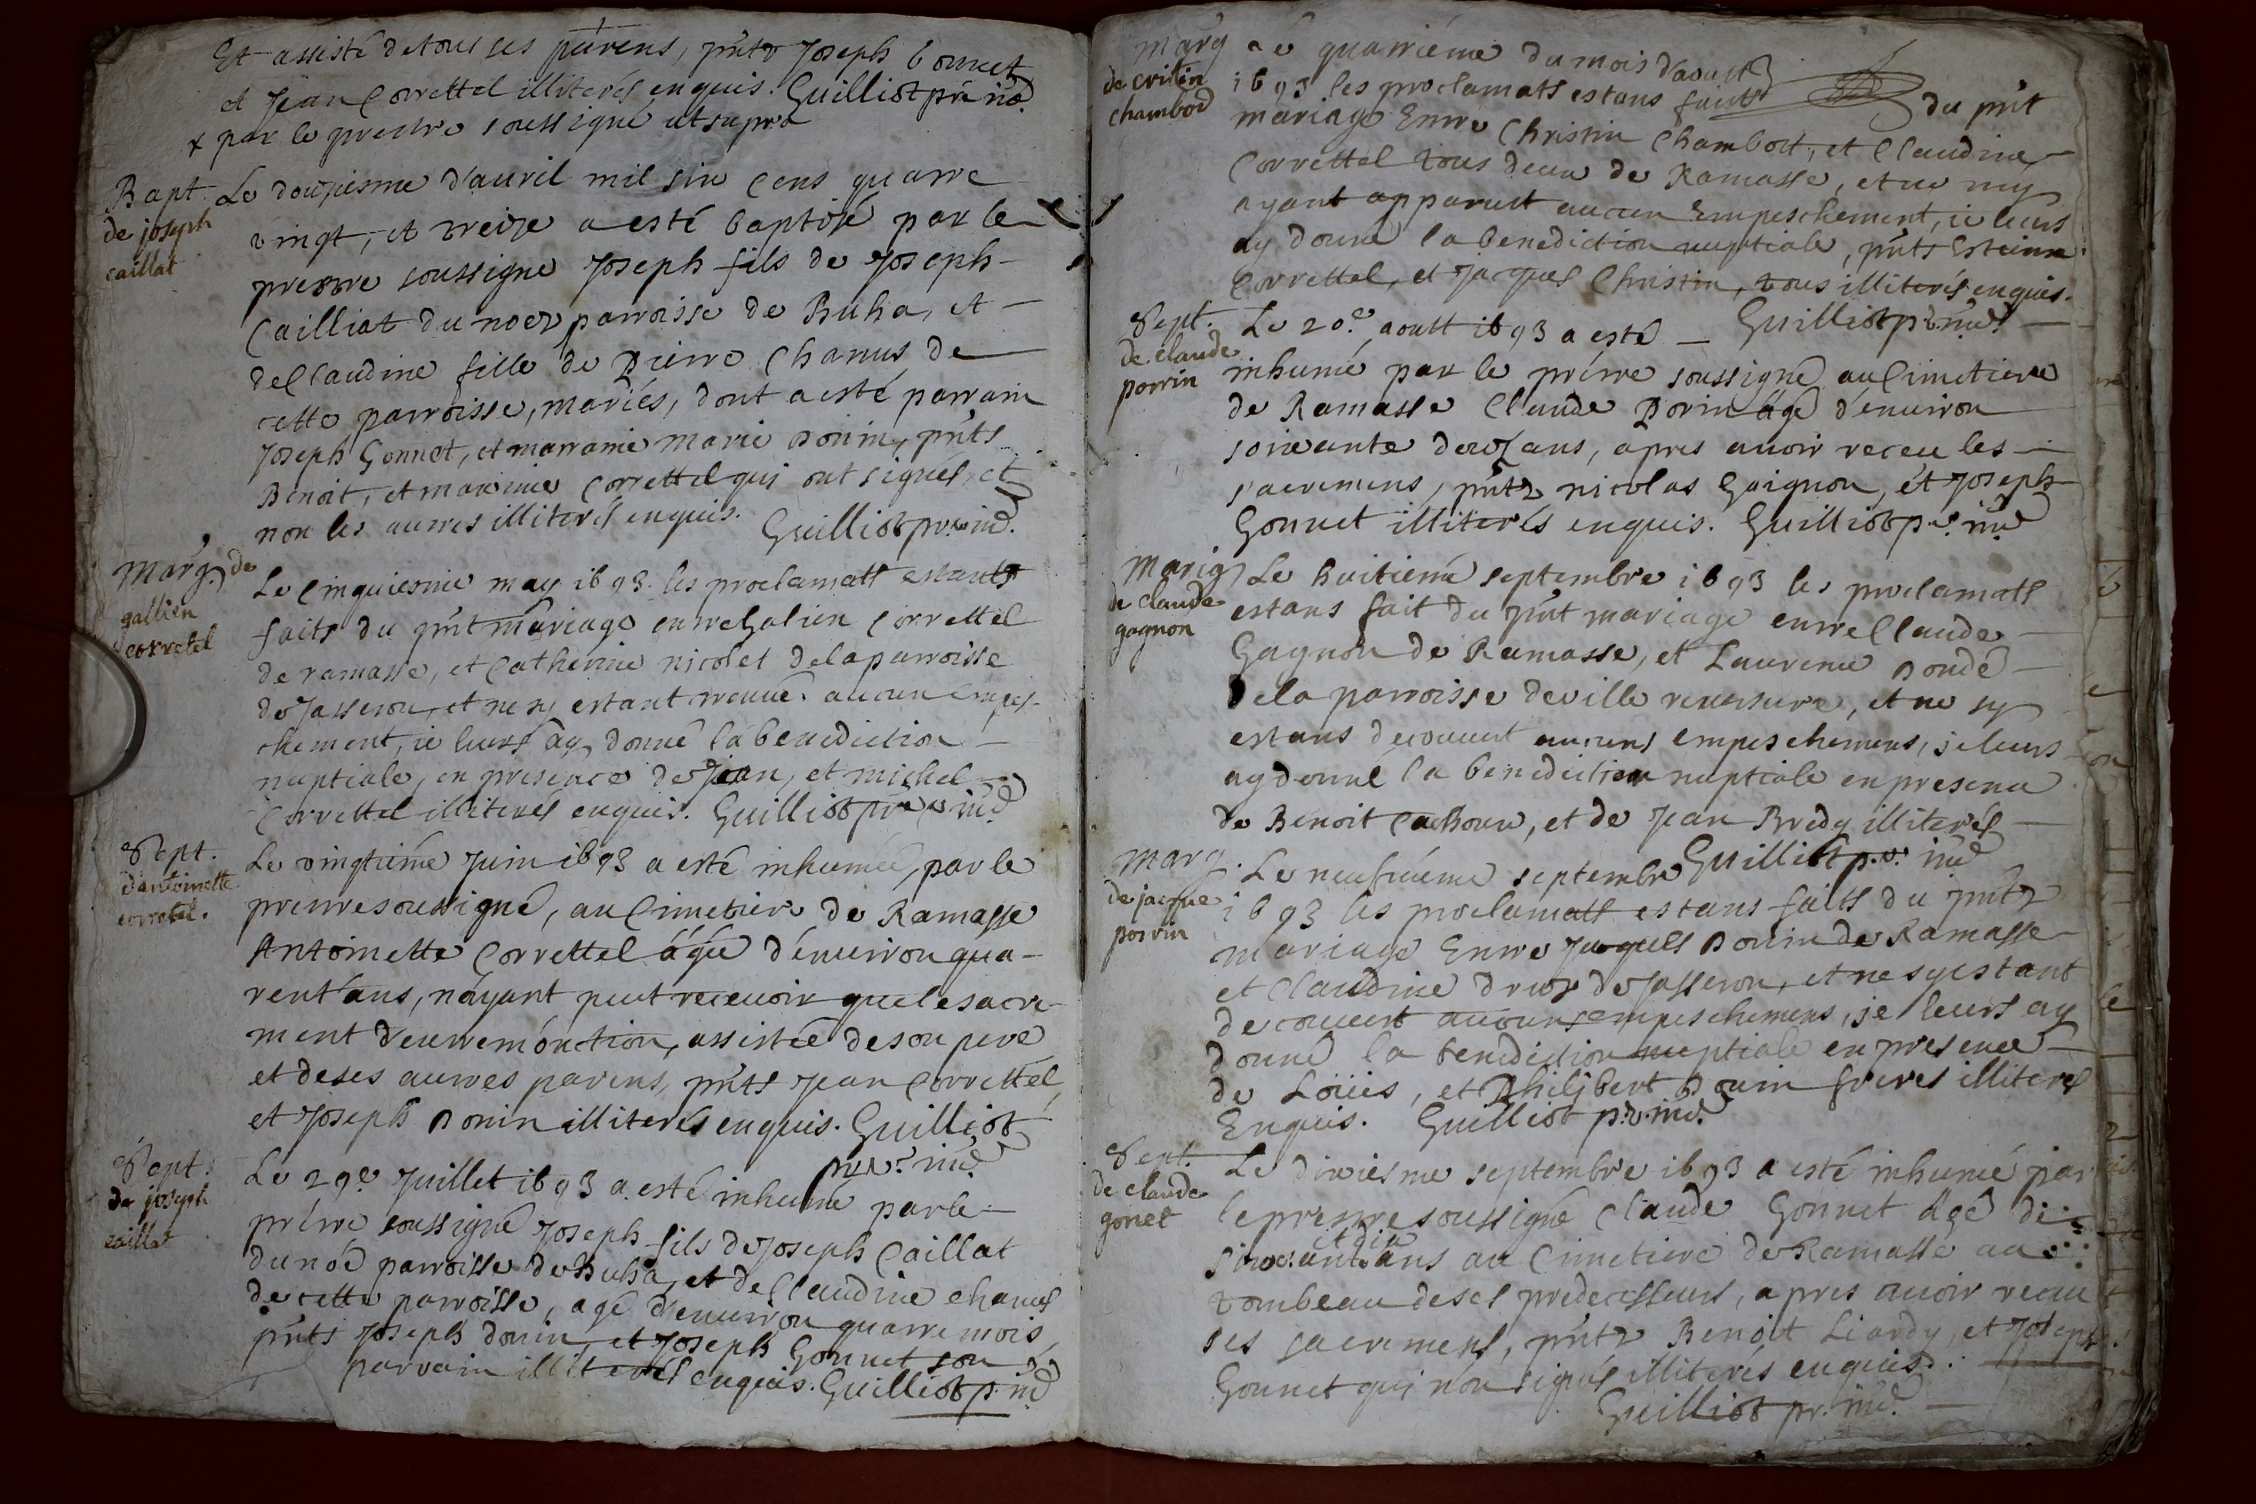 Et assisté de tous ses parens, pñtz Joseph Gonnet
et Jean Correttel illiterés enquis. Guilliot prê
+ par le prestre soussigné ut supra
Bapt. de joseph caillat
Le douziesme d'auril mil six cens quattre
vingt, et treize a esté baptisé par le
prestre soussigne Joseph fils de Joseph
Cailliat du noez parroisse de Buha, et
de Claudine fille de Pierre Chanus de
cette parroisse, mariés, dont a esté parrain
Joseph Gonnet, et marraine marie Donin, pñts
Benoit, et maximie Correttel qui ont signés, et
non les autres illiterés enquis. Guilliot pre. ind.
Marig. de gallien corretel
Le Cinquiesme may 1693 les proclamats estants
faits du pñt mariage entre Galien Correttel
de ramasse, et Catherine nicolet de la parroisse
de Jasseron, et ne sy estant trouué aucun empes-
chement, ie leurs ay donné la benediction
nuptiale, en presence de Jean, et michel
Correttel illiterés enquis. Guilliot pre ind.
Sept. d'antoinette corretel.
Le vingtiéme Juin 1693 a esté inhumée, par le
prestre soussigné, au Cimetiere de Ramasse
Antoinette Correttel âgée d'enuiron qua-
rent'ans, n'ayant peut receuoir que le sacre-
ment d'extremónction, assistée de son pere
et de ses autres parens, pñts Jean Correttel,
et Joseph Donin illiterés enquis. Guilliot
pre. ind.
Sept. de joseph caillat
Le 29e Juillet 1693 a esté inhumé par le
prêtre soussigné Joseph fils de Joseph Caillat
du noé parroisse de Buha, et de Claudine chanus
de cette parroisse, agé d'enuiron quattre mois,
pñts Joseph donin et Joseph Gonnet son
parrain illiterés enquis. Guilliot p. ind
Marg de critin chambod
Le quatriéme du mois d'aoust
1693 les proclamats estans faits du pñt
mariage Entre Christin Chambort, et Claudine
Correttel tous deux de Ramasse, et ne m'y
ayant apparust aucun Empeschement, ie leurs
ay donné la benediction nuptiale, pñts Esteinne
Correttel, et Jacques Christin, tous illiterés enquis.
Guilliot pr. ind.
Sept. de claude porrin
Le 20e. aoust 1693 a esté
inhumé par le prêtre soussigné au Cimetiere
de Ramasse Claude Dorin âgé d'enuiron
soixante douz ans, apres auoir receu les
sacremens, pñtz nicolas Gaignon, et Joseph
Gonnet illiterés enquis. Guilliot pr. ind
Marig de claude gagnon
Le huitiéme septembre 1693 les proclamats
estans fait du pñt mariage entre Claude
Gagnon de Ramasse, et Laurence Dondé
De la parroisse de ville reuersure, et ne sy
estans decouuert aucuns empeschemens, je leurs
ay donné la benediction nuptiale en presence
de Benoit Cachoux, et de Jean Bredy illiterés
Guilliot pr. ind
Marg. de jacque porrin
Le neufuieme septembre
1693 les proclamats estans faits du pñtz
mariage Entre Jacques Donin de Ramasse
et Claudine druoz de Jasseron, et ne sy estant
decouuert aucuns empeschemens, je leurs ay
donné la benediction nuptiale en presence
de Loüis, et Philibert Donin freres illiterés
Enquis. Guilliot pr. ind.
Sept. de claude gonet
Le dixiesme septembre 1693 a esté inhumé par
le prestre soussigné Claude Gonnet âgé de
soixante et dix ans au Cimetiere de Ramasse au
tombeau de ses predecesseurs, apres auoir receu
ses sacremens, pñtz Benoit Liardy, et Joseph
Gonnet qui n'on signés illiterés enquis.
Guilliot pr. ind.